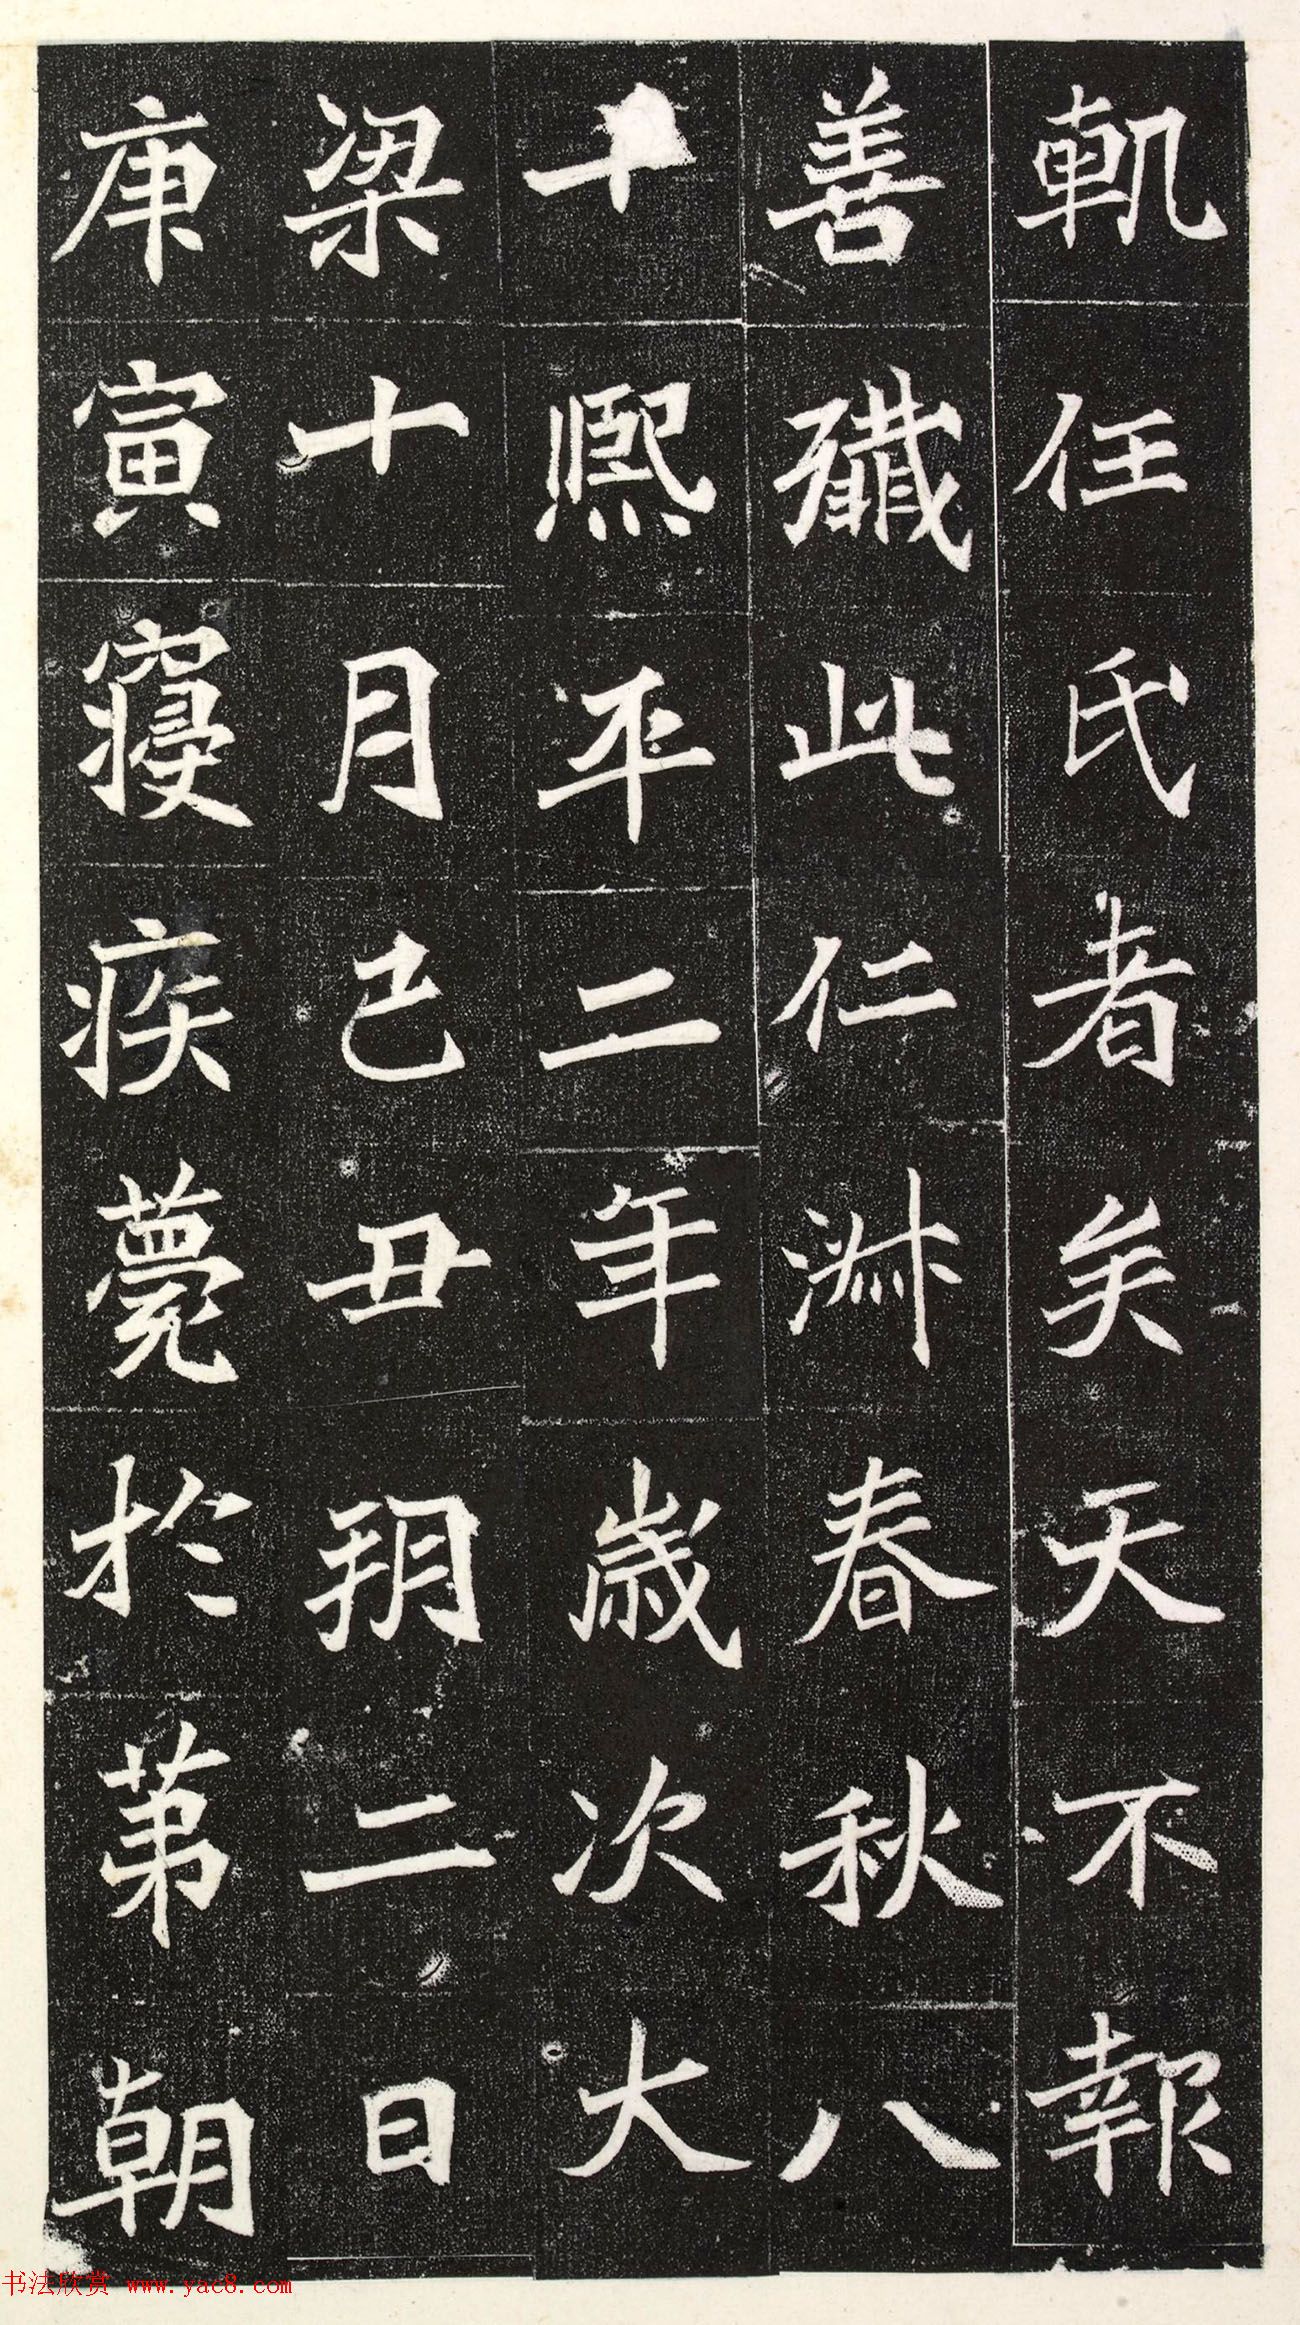 軌任氏者矣天不報
善殲此仁淋春秋八
十熙平二年歲次大
梁十月己丑朔二日
庚寅寑疾薨於苐朝
书法欣赏 www.yac8.com